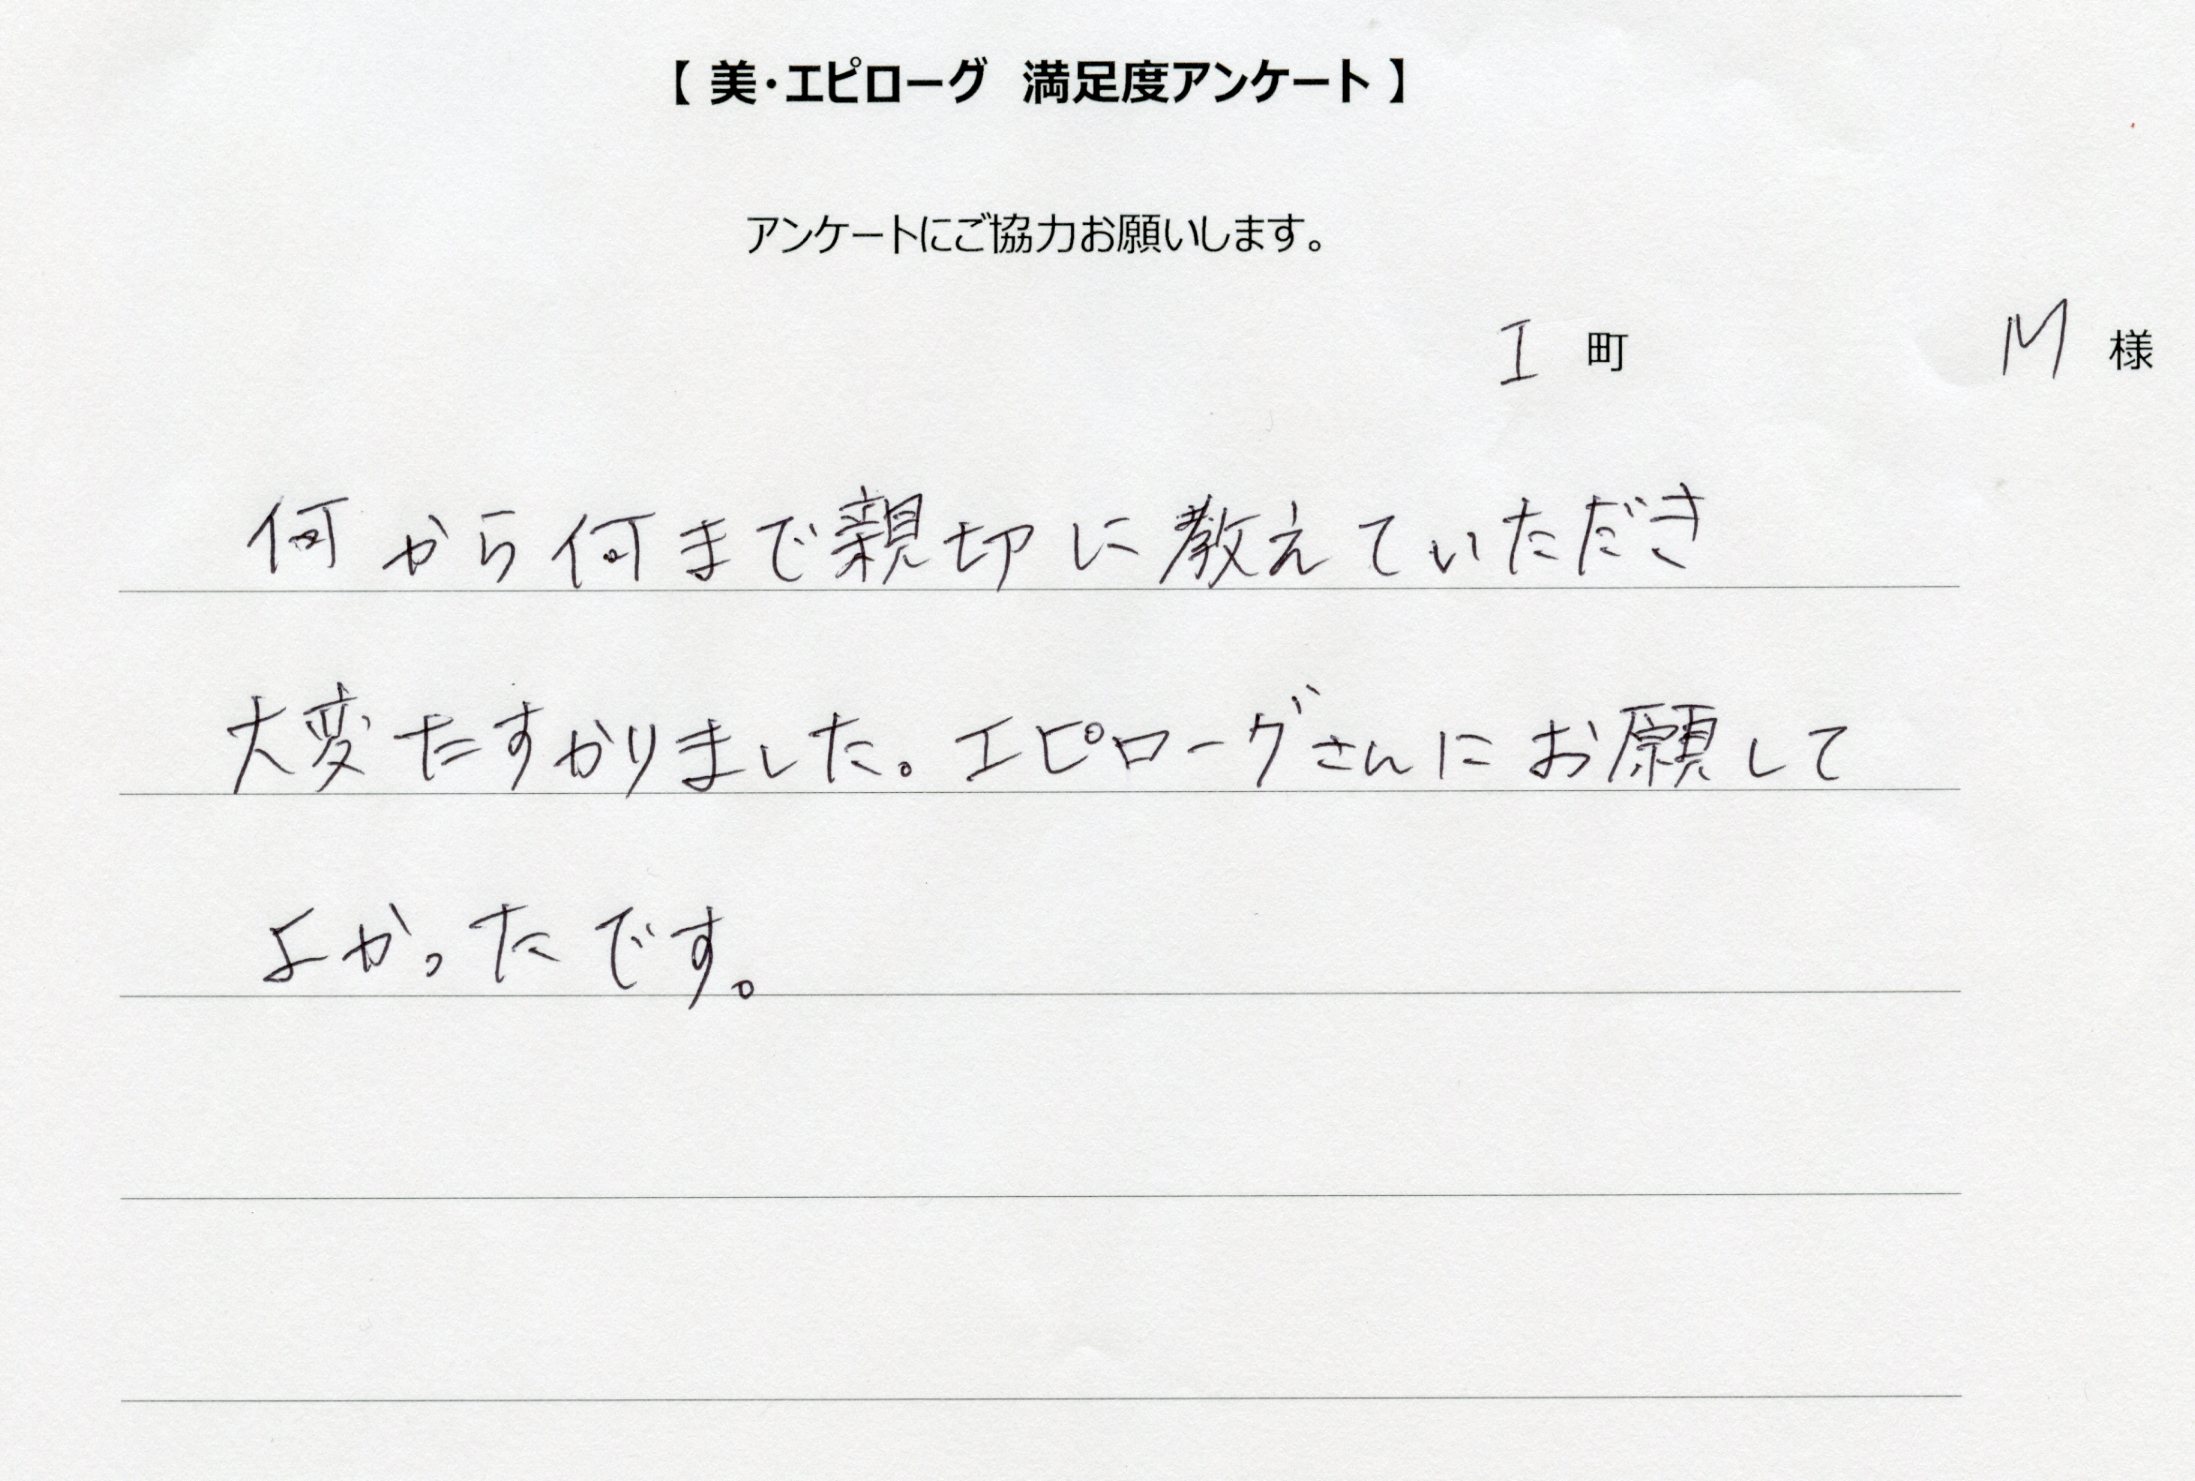 【 美・エピローグ 満足度アンケート 】
アンケートにご協力お願いします。
I 町 M 様
何から何まで親切に教えていただき
大変たすかりました。エピローグさんにお願して
よかったです。